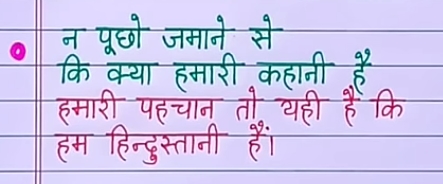 न पूछो जमाने से
कि क्या हमारी कहानी है
हमारी पहचान तो यही है कि
हम हिन्दुस्तानी हैं।